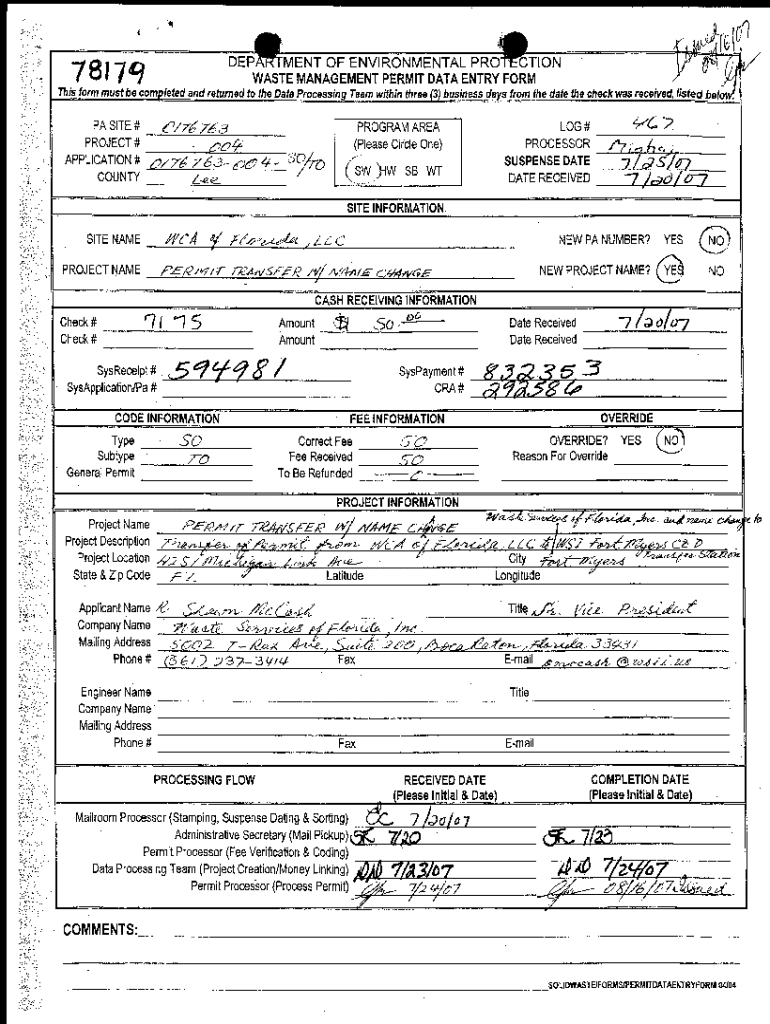 Issued
on 8/16/07
78179
DEPARTMENT OF ENVIRONMENTAL PROTECTION
WASTE MANAGEMENT PERMIT DATA ENTRY FORM
This form must be completed and returned to the Data Processing Team within three (3) business days from the date the check was received, listed below.
PA SITE # 0176763 PROGRAM AREA LOG # 467
PROJECT # 004 (Please Circle One) PROCESSOR
APPLICATION # 0176763-004-SO/TO SW HW SB WT SUSPENSE DATE 7/25/07
COUNTY Lee DATE RECEIVED 7/20/07
SITE INFORMATION
SITE NAME WCA of Florida, LLC NEW PA NUMBER? YES NO
PROJECT NAME PERMIT TRANSFER W/ NAME CHANGE NEW PROJECT NAME? YES NO
CASH RECEIVING INFORMATION
Check # 7175 Amount $ 50.00 Date Received 7/20/07
Check # Amount Date Received
SysReceipt # 594981 SysPayment # 832353
SysApplication/Pa # CRA # 292586
CODE INFORMATION FEE INFORMATION OVERRIDE
Type SO Correct Fee 50 OVERRIDE? YES NO
Subtype TO Fee Received 50 Reason For Override
General Permit To Be Refunded 0
PROJECT INFORMATION
Project Name PERMIT TRANSFER W/ NAME CHANGE Waste Services of Florida, Inc. and name change to
Project Description Transfer of Permit from WCA of Florida, LLC to WSI Fort Myers C&D Transfer Station
Project Location 4251 Michigan Link Ave City Fort Myers
State & Zip Code FL Latitude Longitude
Applicant Name R. Shawn McCash Title Sr. Vice President
Company Name Waste Services of Florida, Inc.
Mailing Address 5002 T-Rex Ave, Suite 200, Boca Raton, Florida 33431
Phone # (561) 237-3414 Fax E-mail smccash@wsii.us
Engineer Name Title
Company Name
Mailing Address
Phone # Fax E-mail
PROCESSING FLOW RECEIVED DATE COMPLETION DATE
(Please Initial & Date) (Please Initial & Date)
Mailroom Processor (Stamping, Suspense Dating & Sorting) CC 7/20/07
Administrative Secretary (Mail Pickup) SK 7/20 SK 7/23
Permit Processor (Fee Verification & Coding)
Data Processing Team (Project Creation/Money Linking) DD 7/23/07 DD 7/24/07
Permit Processor (Process Permit) 7/24/07 08/16/07 Issued
COMMENTS:
SOLIDWASTE/FORMS/PERMITDATAENTRYFORM 04/04